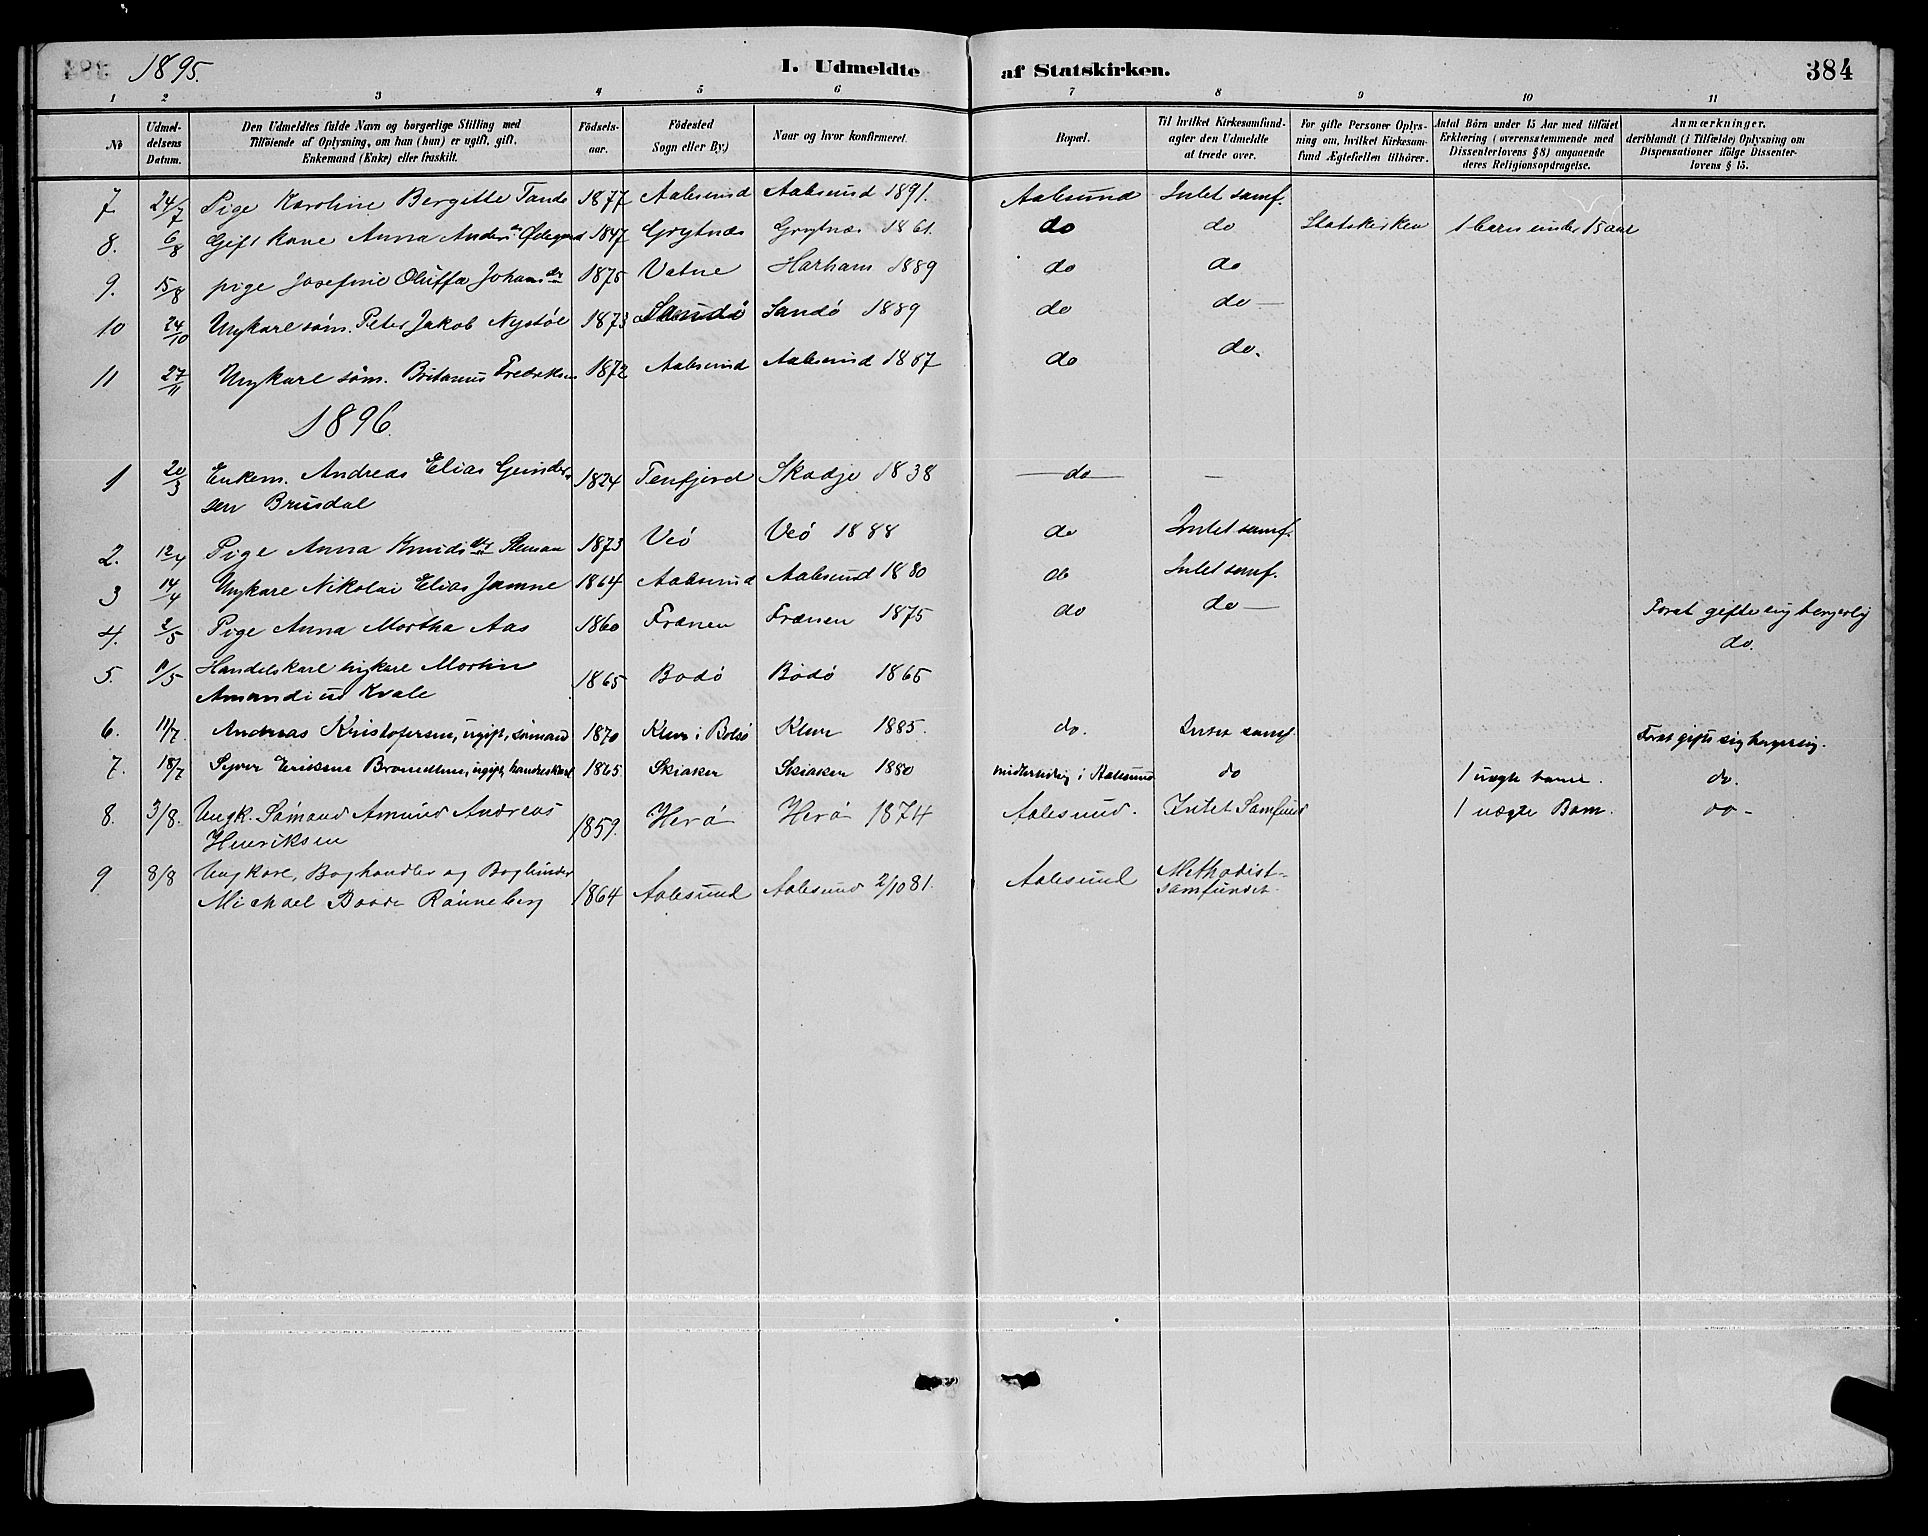 384
1895.
I. Udmeldte af Statskirken.
1 2 3 4 5 6 7 8 9 10 11
No
Udmeldelsens Datum.
Den Udmeldtes fulde Navn og borgerlige Stilling med
Tilföiende af Oplysning, om han (hun) er ugift, gift,
Enkemand (Enke) eller fraskilt.
Födselsaar.
Födested
Sogn eller By)
Naar og hvor konfirmeret.
Bopæl.
Til hvilket Kirkesamfund-
agter den Udmeldte
at træde over.
For gifte Personer Oplys-
ning om, hvilket Kirkesam-
fund Ægtefællen tilhører.
Antal Börn under 15 Aar med tilföiet
Erklæring (overensstemmende med
Dissenterlovens § 8) angaaende
deres Religionsopdragelse.
Anmærkninger.
deriblandt (i Tilfælde) Oplysning om
Dispensationer ifölge Dissenter-
lovens § 15.
7 24/7 Pige Karoline Bergitte Tande 1877 Aalesund Aalesund 1891. Aalesund Intet samf.
8. 6/8 Gift Kone Anna Andersdr Ødegaard 1847 Grytnæs Grytnæs 1861. do do Statskirken 1 barn under 15 aar
9. 15/8 pige Josefine Oluffa Johansdr 1875 Vatne Harham 1889 do do
10 24/10 Ungkarl søm. Peter Jakob Nystøl 1873 Sandö Sandö 1889 do do —
11 27/11 Ungkarl søm. Britanus Fredriksen 1872 Aalesund Aalesund 1867 do do.
1896.
1 20/3 Enkem. Andreas Elias Gunder-
sen Brusdal 1824 Tenfjord Skodje 1838 — do — —
2. 12/4 Pige Anna Knudsdr 1873 Veö Veö 1888 do Intet samf.
3 14/4 Ungkarl Nikolai Elias Jamne 1864 Aalesund Aalesund 1880 do Intet samf.
4. 2/5 Pige Anna Martha Aas 1860 Frænen Frænen 1875 do do — Forat gifte sig borgerlig
5. 11/5 Handelskarl ungkarl Martin
Amandius Kvale 1865 Bodö Bodö 1865 do.
6. 11/7. Andreas Kristofersen, ugift, sömand 1870 Kleve i Bolsö Kleve 1885. do. Intet samf. Forat gifte sig borgerlig.
7. 18/7 Syver Eriksen ugift, handelskarl 1865 Skiaker Skiaker 1880 midlertidig i Aalesund do 1 uægte barn. do.
8. 3/8. Ungk. Sömand Amund Andreas
Henriksen 1859. Herö Herö 1874 Aalesund. Intet Samfund 1 uægte Barn. do -
9 8/8 Ungkarl, Boghandler og Bogbinder
Michael Baade Rönneberg 1864 Aalesund Aalesund 2/10 81. Aalesund Methodist-
samfundet.
384